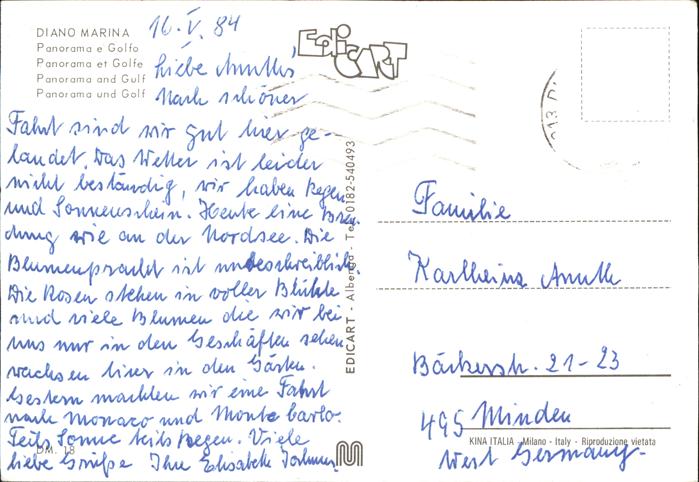 DIANO MARINA
Panorama e Golfo
Panorama et Golfe
Panorama and Gulf
Panorama und Golf
16. V. 84
EdiCART
Liebe Annths'
Nach schöner
Fahrt sind wir gut hier ge-
landet. Das Wetter ist leider
nicht beständig, wir haben Regen
und Sonnenschein. Heute eine Bran-
dung wie an der Nordsee. Die
Blumenpracht ist unbeschreiblich.
Die Rosen stehen in voller Blühte
und viele Blumen die wir bei
uns nur in den Geschäften sehen
wachsen hier in den Gärten.
Gestern machten wir eine Fahrt
nach Monaco und Monte Carlo.
Teils Sonne teils Regen. Viele
liebe Grüße Ihre Elisabeth
DM. 18
EDICART - Albenga - Tel. 0182-540493
Familie
Karlheinz Annth
Bäckerstr. 21-23
495 Minden
West Germany.
KINA ITALIA - Milano - Italy - Riproduzione vietata